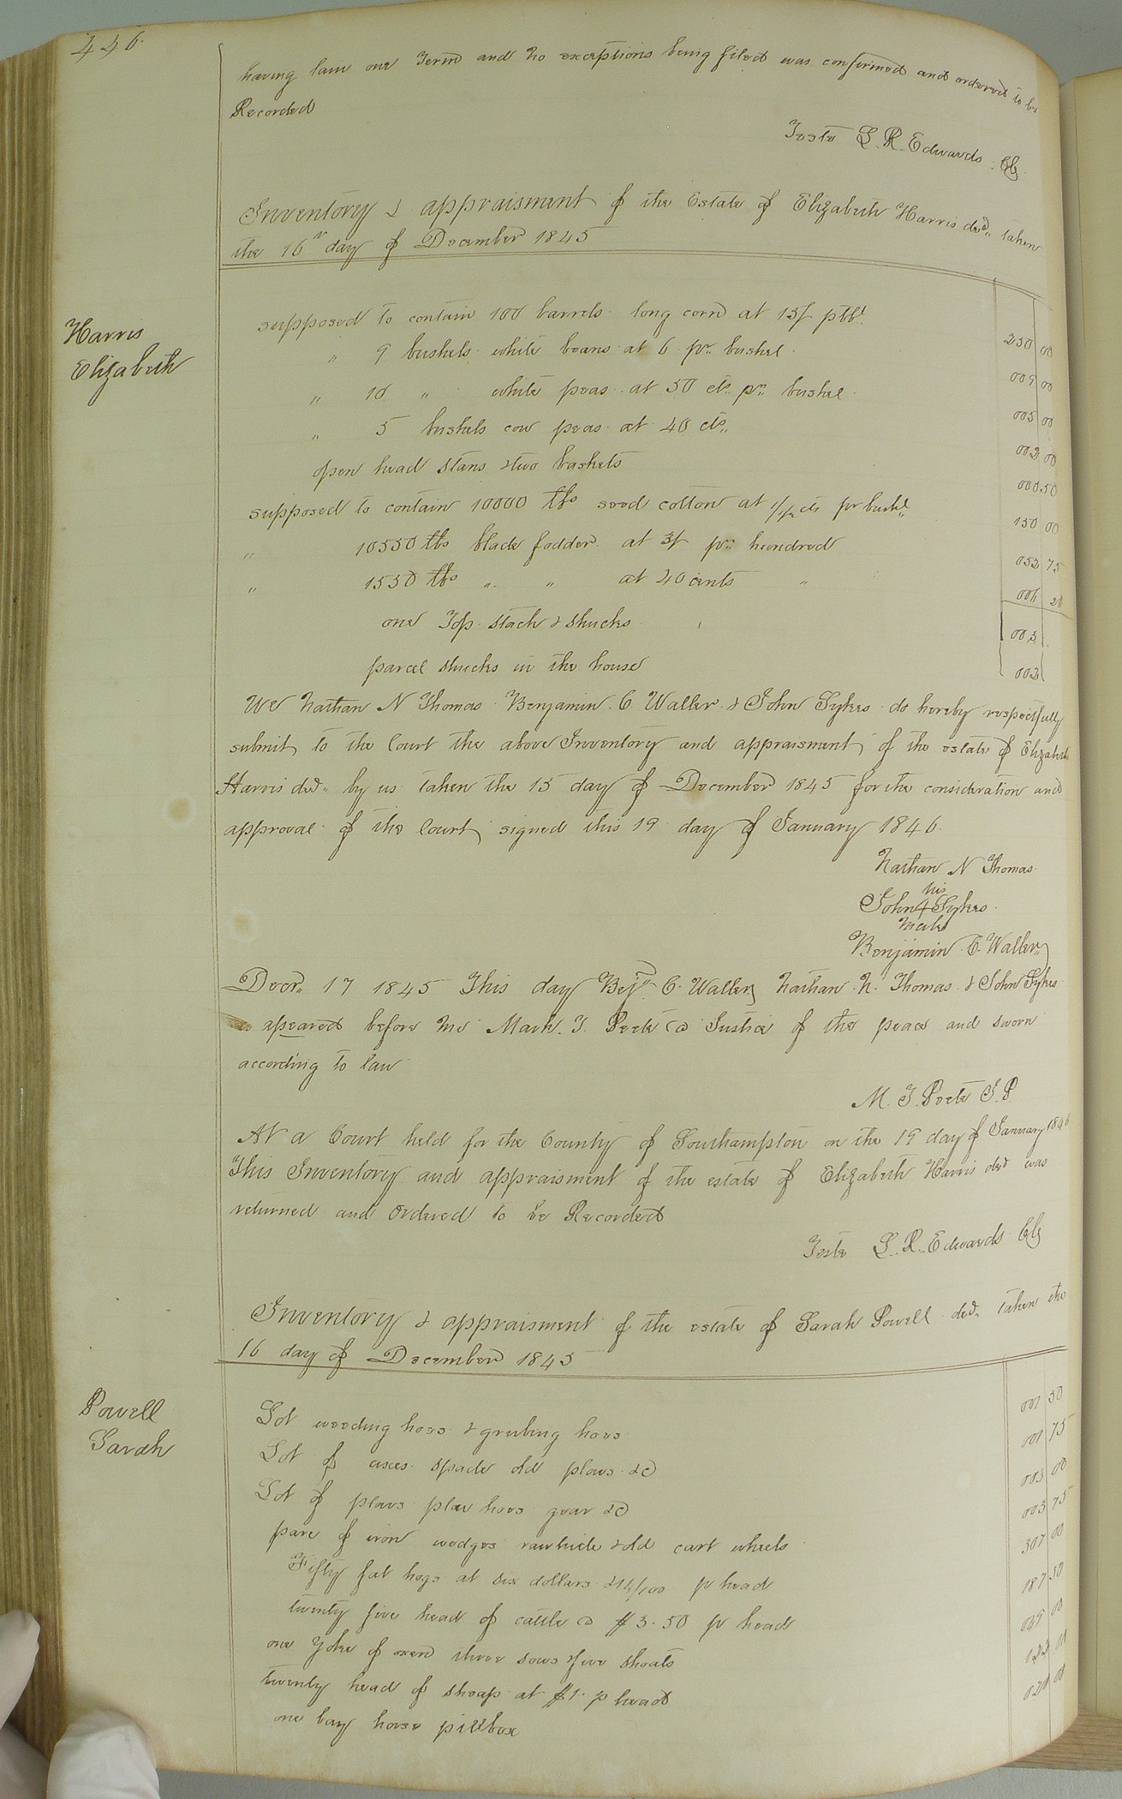 446.
having lain one Term and no exceptions being filed was confirmed and ordered to be
Recorded
Teste L. R. Edwards Clk
Inventory & appraisment of the Estate of Elizabeth Harris decd. taken
the 16th day of December 1845
Harris
Elizabeth
supposed to contain 100 barrels long corn at 15/ pr bbl. 250 00
" 9 bushels white beans at 6 pr. bushel 009 00
" 10 " white peas at 50 cts. pr. bushel 005 00
" 5 bushels cow peas at 40 cts. 002 00
open head stans & two baskets 000 50
supposed to contain 10000 lbs seed cotton at 1 1/2 cts pr 150 00
" 10550 lbs blade fodder at 3/ pr. hundred 052 75
" 1550 lbs " " at 40 cents " 006 20
one Top stack & shucks 005
parcel shucks in the house 002
We Nathan N Thomas Benjamin C Waller & John Sykes do hereby respectfully
submit to the Court the above Inventory and appraisment of the estate of Elizabeth
Harris decd. by us taken the 15 day of December 1845 for the consideration and
approval of the Court signed this 19 day of January 1846.
Nathan N Thomas
his
John + Sykes
mark
Benjamin C. Waller
Decr. 17 1845 This day Benj C. Waller Nathan N. Thomas & John Sykes
apeared before me Mark. T. Peete a Justice of the peace and sworn
according to law
M. T. Peete J. P
At a Court held for the County of Southampton on the 19 day of January 1846
This Inventory and appraisment of the estate of Elizabeth Harris decd was
returned and Ordered to be Recorded
Teste L. R. Edwards Clk
Inventory & appraisment of the estate of Sarah Powell decd. taken the
16 day of December 1845
Powell
Sarah
Lot weeding hoes & grubing hoes 001 50
Lot of axes spade old plows &c 001 75
Lot of plows plow hoes gear &c 005 00
pare of iron wedges rawhide & old cart wheels 003 75
Fifty fat hogs at six dollars & 14/100 pr head 307 00
twenty five head of cattle @ $3.50 pr head 187 50
one yoke of oxen three sows & five shoats 00
twenty head of sheap at $1. p head
one bay horse pillbox